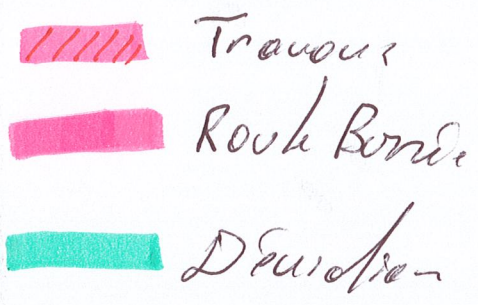 Travaux
Route Barrée
Déviation